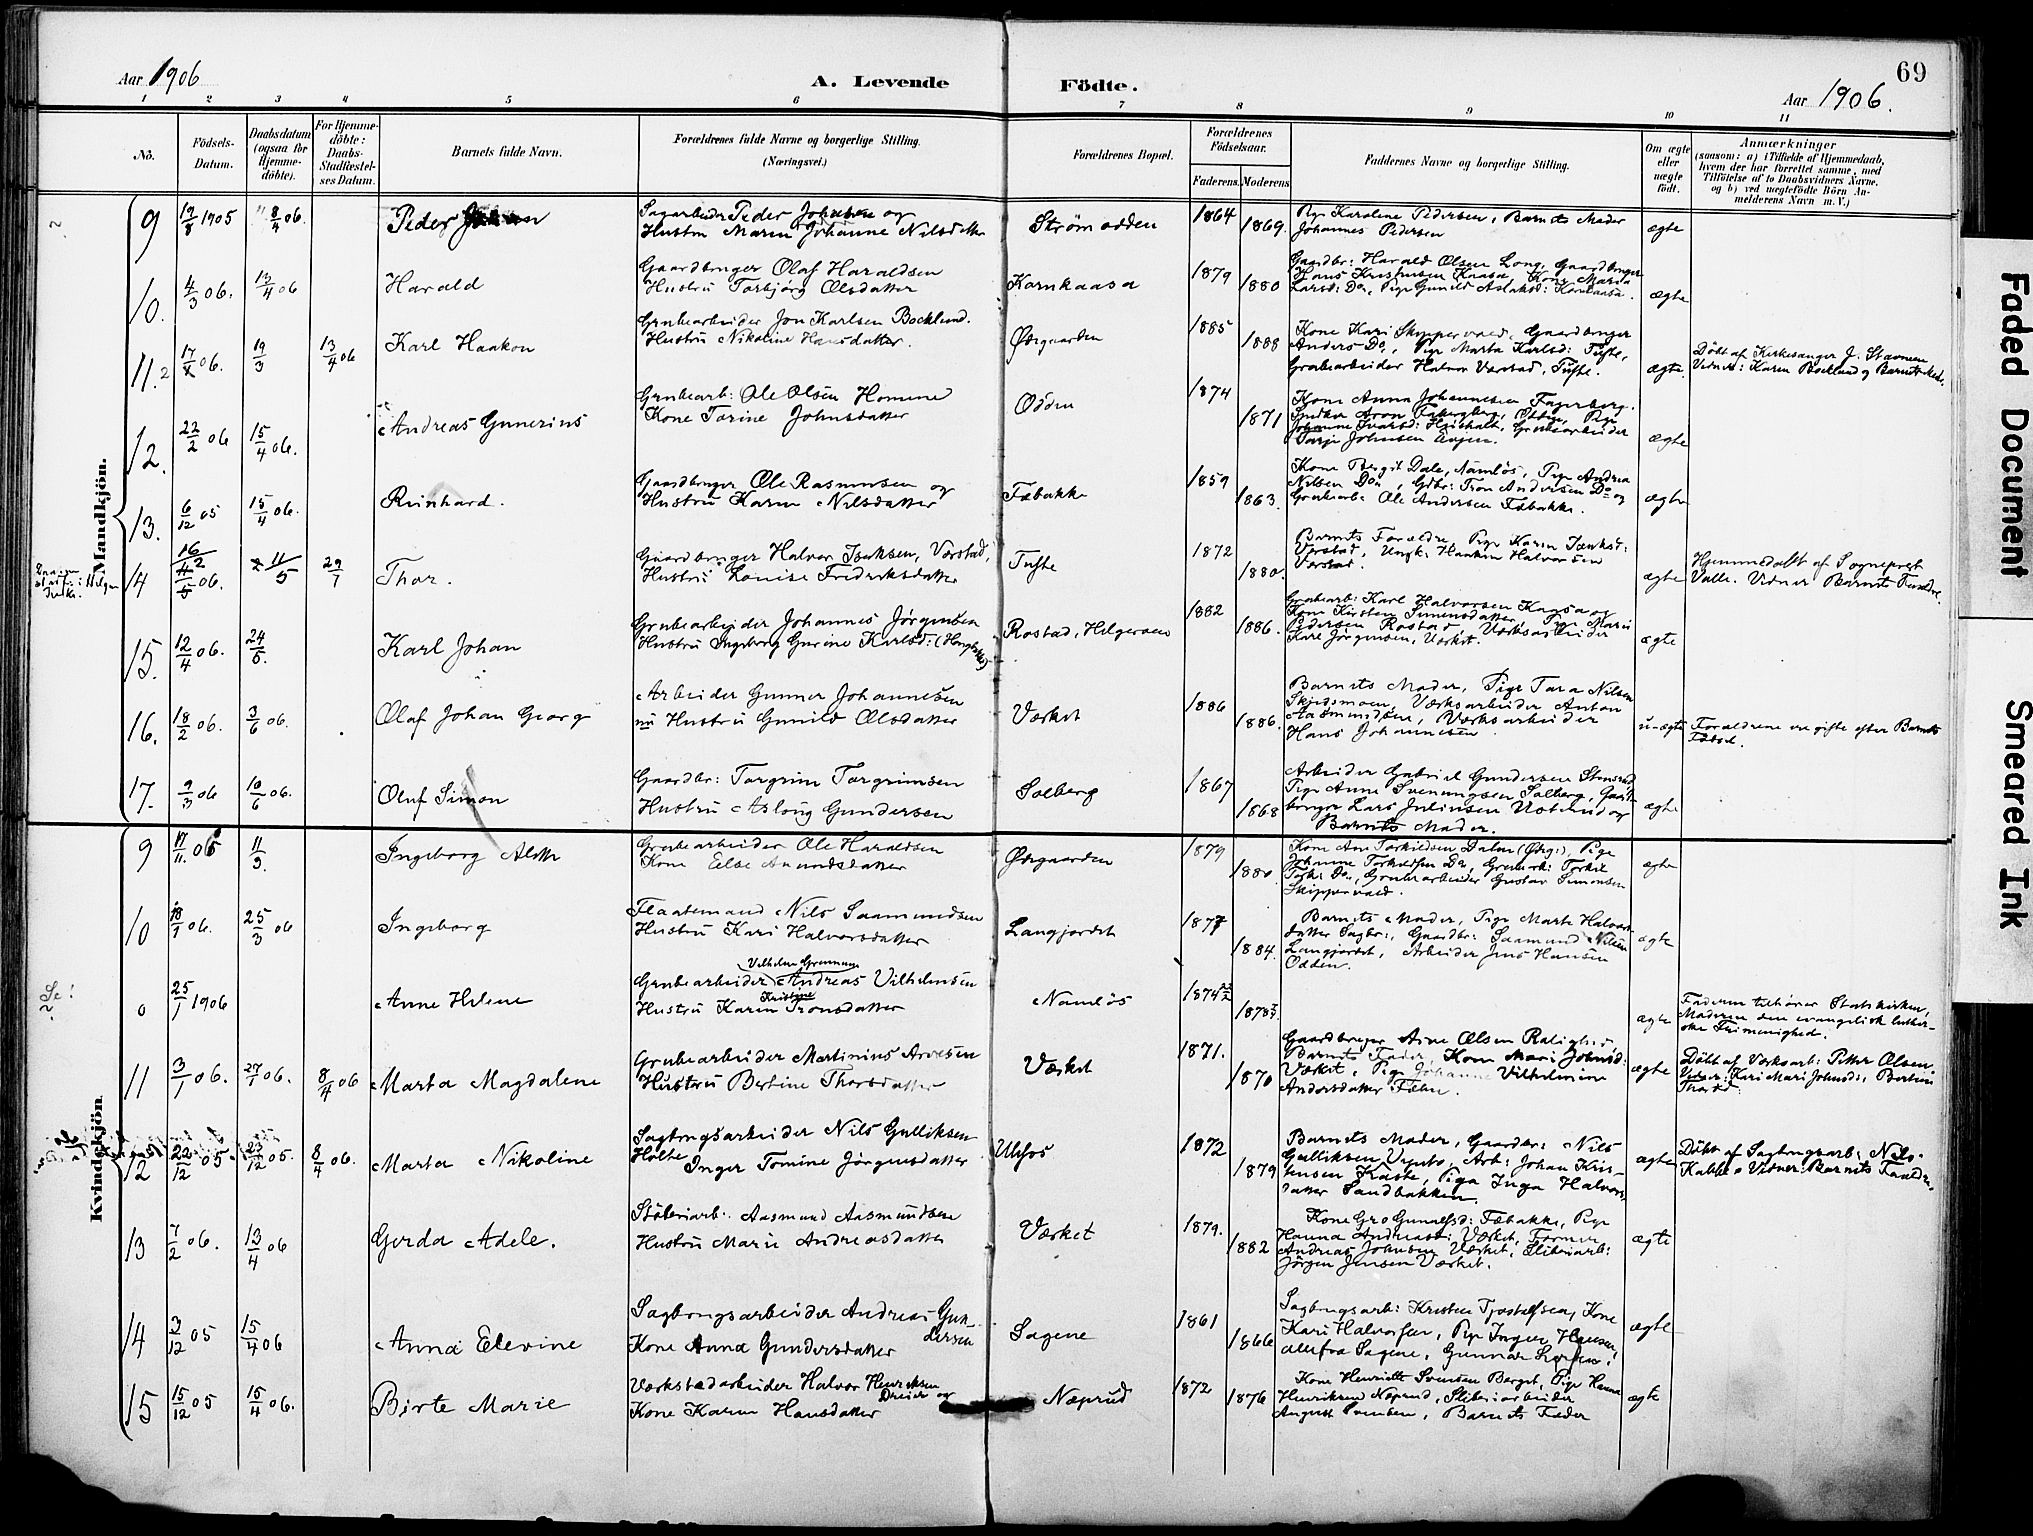 Aar 1906
A. Levende Födte.
69
Aar 1906.
1 2 3 4 5 6 7 8 9 10 11
No.
Födsels-Datum.
Daabsdatum (ogsaa for Hjemme-döbte).
For Hjemme-döbte: Daabs-Stadfæstel-ses Datum.
Barnets fulde Navn.
Forældrenes fulde Navne og borgerlige Stilling. (Næringsvei.)
Forældrenes Bopæl.
Forældrenes Födselsaar.
Faderens. Moderens.
Faddernes Navne og borgerlige Stilling.
Om ægte eller uægte födt.
Anmærkninger
(saasom: a) i Tilfælde af Hjemmedaab, hvem der har forrettet samme, med Tilföielse af to Daabsvidners Navne, og b) ved uægtefödte Börn An-melderens Navn m. V.)
Mandkjön.
9 19/8 1905 8/4 06. Peder
Sagarbeider Peder Johnsen og
Hustru Maren Johanne Nilsdatter
Strømodden 1864 1869.
Pige Karoline Pedersen, Barnets Moder
Johannes Pedersen
ægte
10. 4/3 06. 13/4 06 Harald
Gaardbruger Olaf Haraldsen
Hustru Torbjørg Olsdatter
Kornkaasa 1879 1880
Gaardbr: Harald Olsen Long, Gaardbruger
Hans Kristensen Kaasa, Kone Maria
Larsd: Do, Pige Gunild Aslaksd: Kornkaasa.
ægte
11. 06. 19/3 13/4 06 Karl Haakon
Grubearbeider Jon Karlsen Bocklund.
Hustru Nikoline Hansdatter.
Øvrgaarden 1885 1888
Kone Kari Skippervold, Gaardbruger
Anders Do, Pige Marta Karlsd: Tufte,
Grubearbeider Halvor Værstad, Tufte.
ægte.
Döbt af Kirkesanger J. Stavnen
Vidner: Karen Bocklund og Barnets Mod.
12. 22/2 06 15/4 06. Andreas Gunerius
Grubearb: Ole Olsen Homme
Kone Torine Johnsdatter
Odden 1874 1871
Kone Anna Johannesen Fagerberg.
Snedker Aron Fagerberg, Pige
Grubearbeider
Tarje Johnsen
ægte
13. 6/12 05 15/4 06. Reinhard.
Gaardbruger Ole Rasmussen og
Hustru Karen Nilsdatter
Fæbakke 1859 1863.
Kone Bergit Dale, Namløs, Pige Andrea
Nilsen Do, Gdbr: Tron Andersen Do og
Grubearb: Ole Andersen Fæbakke.
ægte
14 06. 11/5 29/7 Thor.
Gaardbruger Halvor Isaksen, Værstad,
Hustru Louise Fredriksdatter
Tufte 1872 1880.
Barnets Forældre, Pige Karen Isaksd:
Værstad, Ungk: Haakon Halvorsen
Værstad.
ægte
Hjemmedøbt af Sogneprest
Valle. Vidner Barnets Forældre.
15. 12/4 06. 24/5. Karl Johan
Grubearbeider Johannes Jørgensen
Hustru Ingeborg Gurine Karlsd:
Rostad, Helgeraaen 1882 1886.
Grubearb: Karl Halvorsen Kaasa og
Kone Kirsten Simensdatter, Pige Maria
Pedersen Rostad, Værksarbeider
Karl Jørgensen, Værket.
ægte
16. 18/2 06. 3/6 06. Olaf Johan Georg
Arbeider Gunner Johannesen
nu Hustru Gunild Olsdatter
Værket 1886 1886.
Barnets Moder, Pige Tara Nilsen
Skjedsmoen, Værksarbeider Anton
Aasmundsen, Værksarbeider
Hans Johannesen
u-ægte
Forældrene er gifte efter Barnets
Fødsel.
17. 9/3 06 10/6 06. Oluf Simon
Gaardbr: Torgrim Torgrimsen
Hustru Aslaug Gundersen
Solberg 1867 1868
Arbeider Gabriel Gundersen Stensrud
Pige Anne Svenungsen Solberg, Gaard-
bruger Lars Julinsen Usterud og
Barnets Moder.
ægte
Kvindekjön
9 17/11. 05 11/3. Ingeborg
Grubearbeider Ole Haraldsen
Kone Else Amundsdatter
Øvrgaarden 1879 1880
Kone Ane Torkildsen Dalen (Øvrg:), Pige
Johanne Torkildsen Do, Grubearb: Torkil
Tork: Do, Grubearbeider Gustav Simonsen
Skippervold.
ægte
10 18/1 06. 25/3 06 Ingeborg
Flaatemand Nils Saamundsen
Hustru Kari Halvorsdatter
Langjordet 1877 1884.
Barnets Moder, Pige Marte Halvors-
datter Sagbr:, Gaardbr: Saamund Nilsen
Langjordet, Arbeider Jens Hansen
Odden.
ægte
0 25/1 1906 Anne Helene
Vilhelm Gromann
Grubearbeider Andreas Vilhelmsen
Kristine
Hustru Karen Tronsdatter
Namløs 1874 1878
ægte
Faderen tilhører Statskirken,
Moderen den evangelisk luther-
ske Frimenighed.
11 3/1 06. 27/1 06. 8/4 06 Marta Magdalene
Grubearbeider Martinius Arvesen
Hustru Bertine Thorsdatter
Værket 1871. 1870
Gaardbruger Arne Olsen
Barnets Fader, Kone Mari Johnsd:
Værket, Pige Johanne Vilhelmine
Andersdatter Fæhn.
ægte
Döbt af Værksarb: Petter Olsen.
Vidner: Kari Mari Johnsd:, Bertine
Thorsd:
12 22/12 05. 23/12 05. 8/4 06. Marta Nikoline
Sagbrugsarbeider Nils Gulliksen
Holte Inger Tomine Jörgensdatter
Ulefos 1872 1879
Barnets Moder, Gaardbr: Nils
Gulliksen Vipeto, Arb: Johan Kris-
tensen Kaste, Pige Inga Halvors-
datter Sandbakken.
ægte
Döbt af Sagbrugsarb: Nils
Vidner Barnets Forældre.
13 7/2 06. 13/4 06 Gerda Adele.
Støberiarb. Aasmund Aasmundsen
Hustru Marie Andreasdatter
Værket 1879. 1882
Kone Gro Gunulfsd: Fæbakke, Pige
Hanna Andreasd: Værket, Former
Andreas Johnsen Værket, Sliberiarb:
Jörgen Jensen Værket.
ægte
14 3/12 05 15/4 06 Anna Elevine
Sagbrugsarbeider Andreas Gun-
dersen
Kone Anna Gundersdatter
Sagene 1861 1866
Sagbrugsarb: Kristen Tjostolfsen, Kone
Kari Halvorsen, Pige Inger Hansen,
alle fra Sagene, Gunnar
ægte
15 15/12 05 15/4 06. Birte Marie
Værkstedarbeider Halvor Henriksen
Dreier og
Kone Karen Hansdatter
Næprud 1872 1876
Kone Henriette Svensen Berget, Pige Hanna
Henriksen Næprud, Sliberiarbeider
August Svensen, Barnets Fader
ægte
Faded Document
Smeared Ink